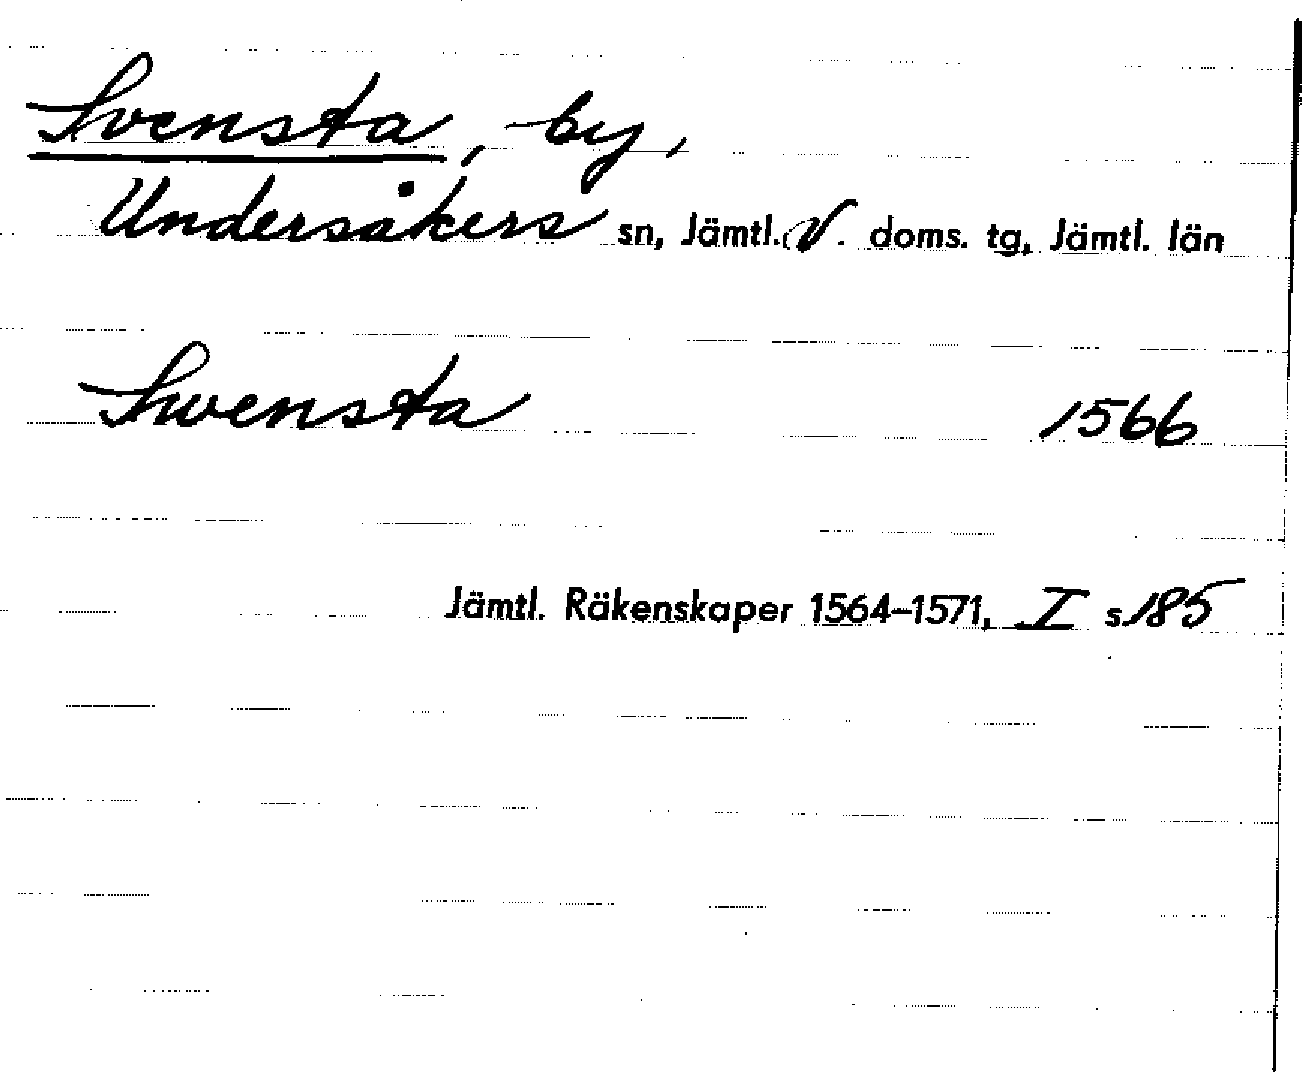 Svensta, by,
Undersåkers sn, Jämtl. V. doms. tg, Jämtl. län
Swensta 1566
Jämtl. Räkenskaper 1564–1571, I s. 185